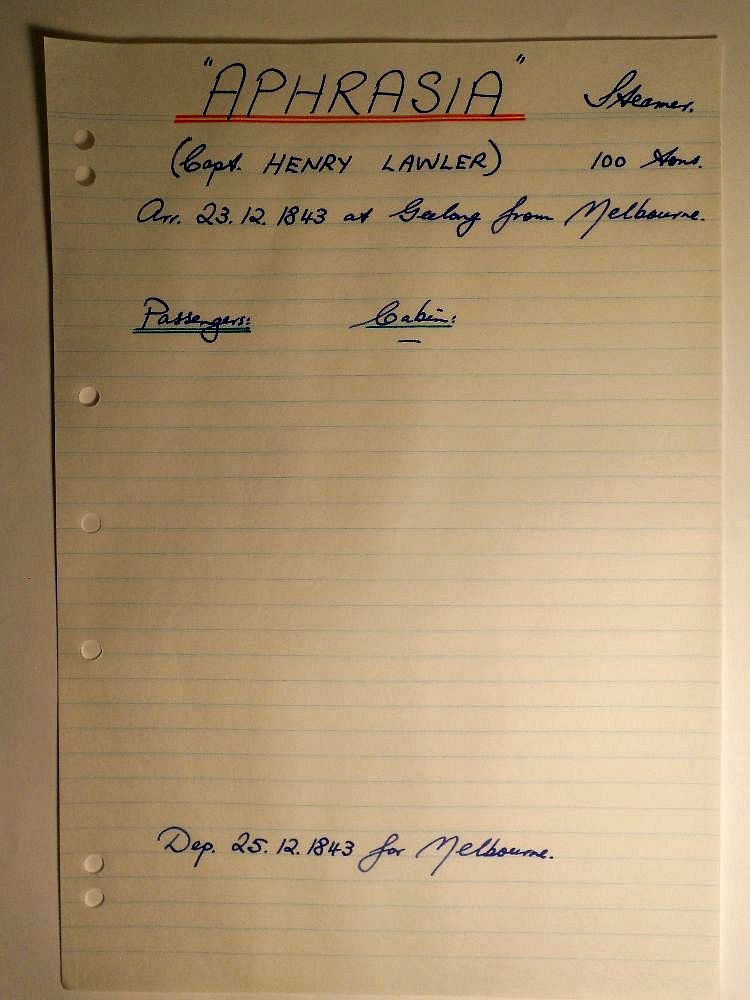 "APHRASIA" Steamer.
(Capt. HENRY LAWLER) 100 tons.
Arr. 23.12.1843 at Geelong from Melbourne.
Passengers: Cabin:
—
Dep. 25.12.1843 for Melbourne.